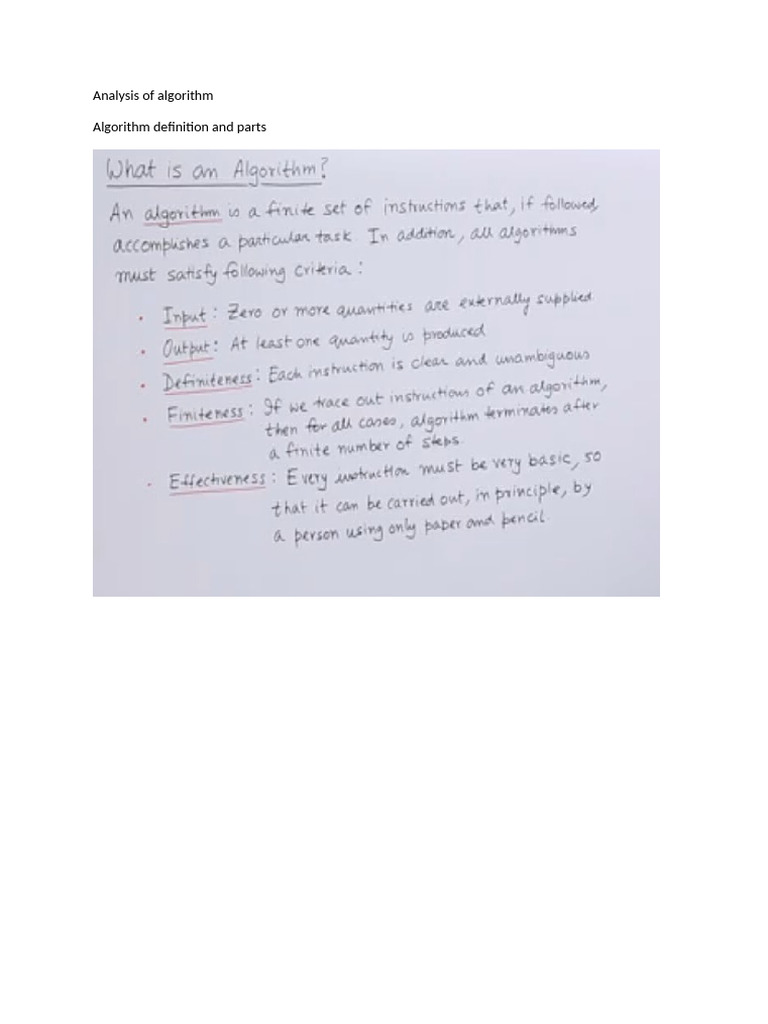 Analysis of algorithm
Algorithm definition and parts
What is an Algorithm?
An algorithm is a finite set of instructions that, if followed,
accomplishes a particular task. In addition, all algorithms
must satisfy following criteria :
• Input : Zero or more quantities are externally supplied
• Output : At least one quantity is produced
• Definiteness : Each instruction is clear and unambiguous
• Finiteness : If we trace out instructions of an algorithm,
then for all cases, algorithm terminates after
a finite number of steps.
• Effectiveness : Every instruction must be very basic, so
that it can be carried out, in principle, by
a person using only paper and pencil.